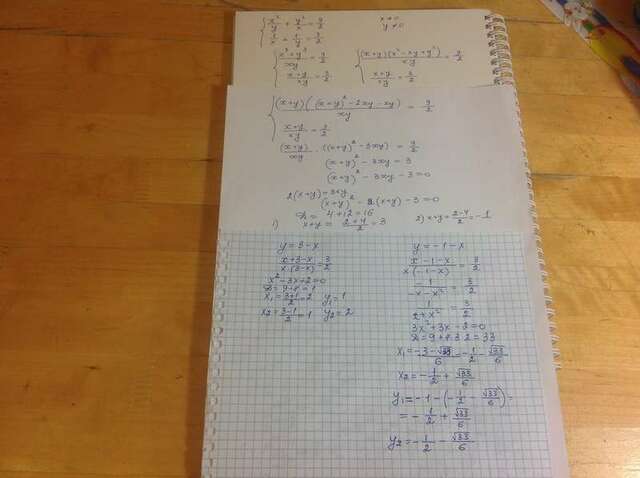 x²/y + y²/x = 9/2    x≠0
1/x + 1/y = 3/2    y≠0
(x³+y³)/xy = 9/2    (x+y)(x²-xy+y²)/xy = 9/2
(x+y)/xy = 3/2    (x+y)/xy = 3/2
(x+y)((x+y)²-2xy-xy)/xy = 9/2
(x+y)/xy = 3/2
(x+y)/xy · ((x+y)²-3xy) = 9/2
(x+y)²-3xy = 3
(x+y)²-3xy-3=0
2(x+y)=3xy
(x+y)²-2(x+y)-3=0
D = 4+12=16
1) x+y = (2+4)/2 = 3    2) x+y = (2-4)/2 = -1
y = 3-x
(x+3-x)/(x·(3-x)) = 3/2
x²-3x+2=0
D = 9-8=1
x₁ = (3+1)/2 = 2    y₁ = 1
x₂ = (3-1)/2 = 1    y₂ = 2
y = -1-x
(x-1-x)/(x(-1-x)) = 3/2
-1/(-x-x²) = 3/2
3x²+3x-2=0
x₂ = -1/2 + √33/6
y₁ = -1-(-1/2 - √33/6) =
= -1/2 + √33/6
y₂ = -1/2 - √33/6